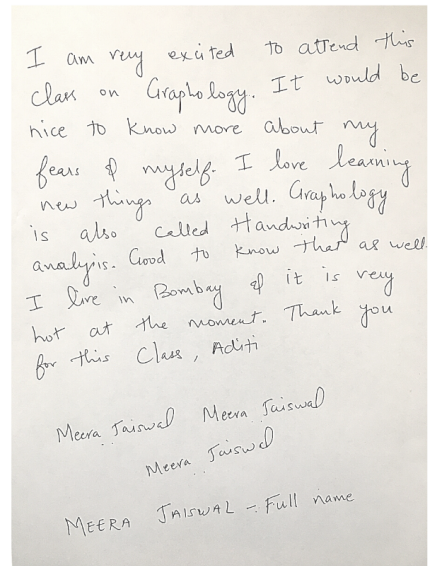 I am very excited to attend this
Class on Graphology. It would be
nice to know more about my
fears & myself. I love learning
new things as well. Graphology
is also called Handwriting
analysis. Good to know that as well.
I live in Bombay & it is very
hot at the moment. Thank you
for this Class, Aditi
Meera Jaiswal Meera Jaiswal
Meera Jaiswal
MEERA JAISWAL - Full name